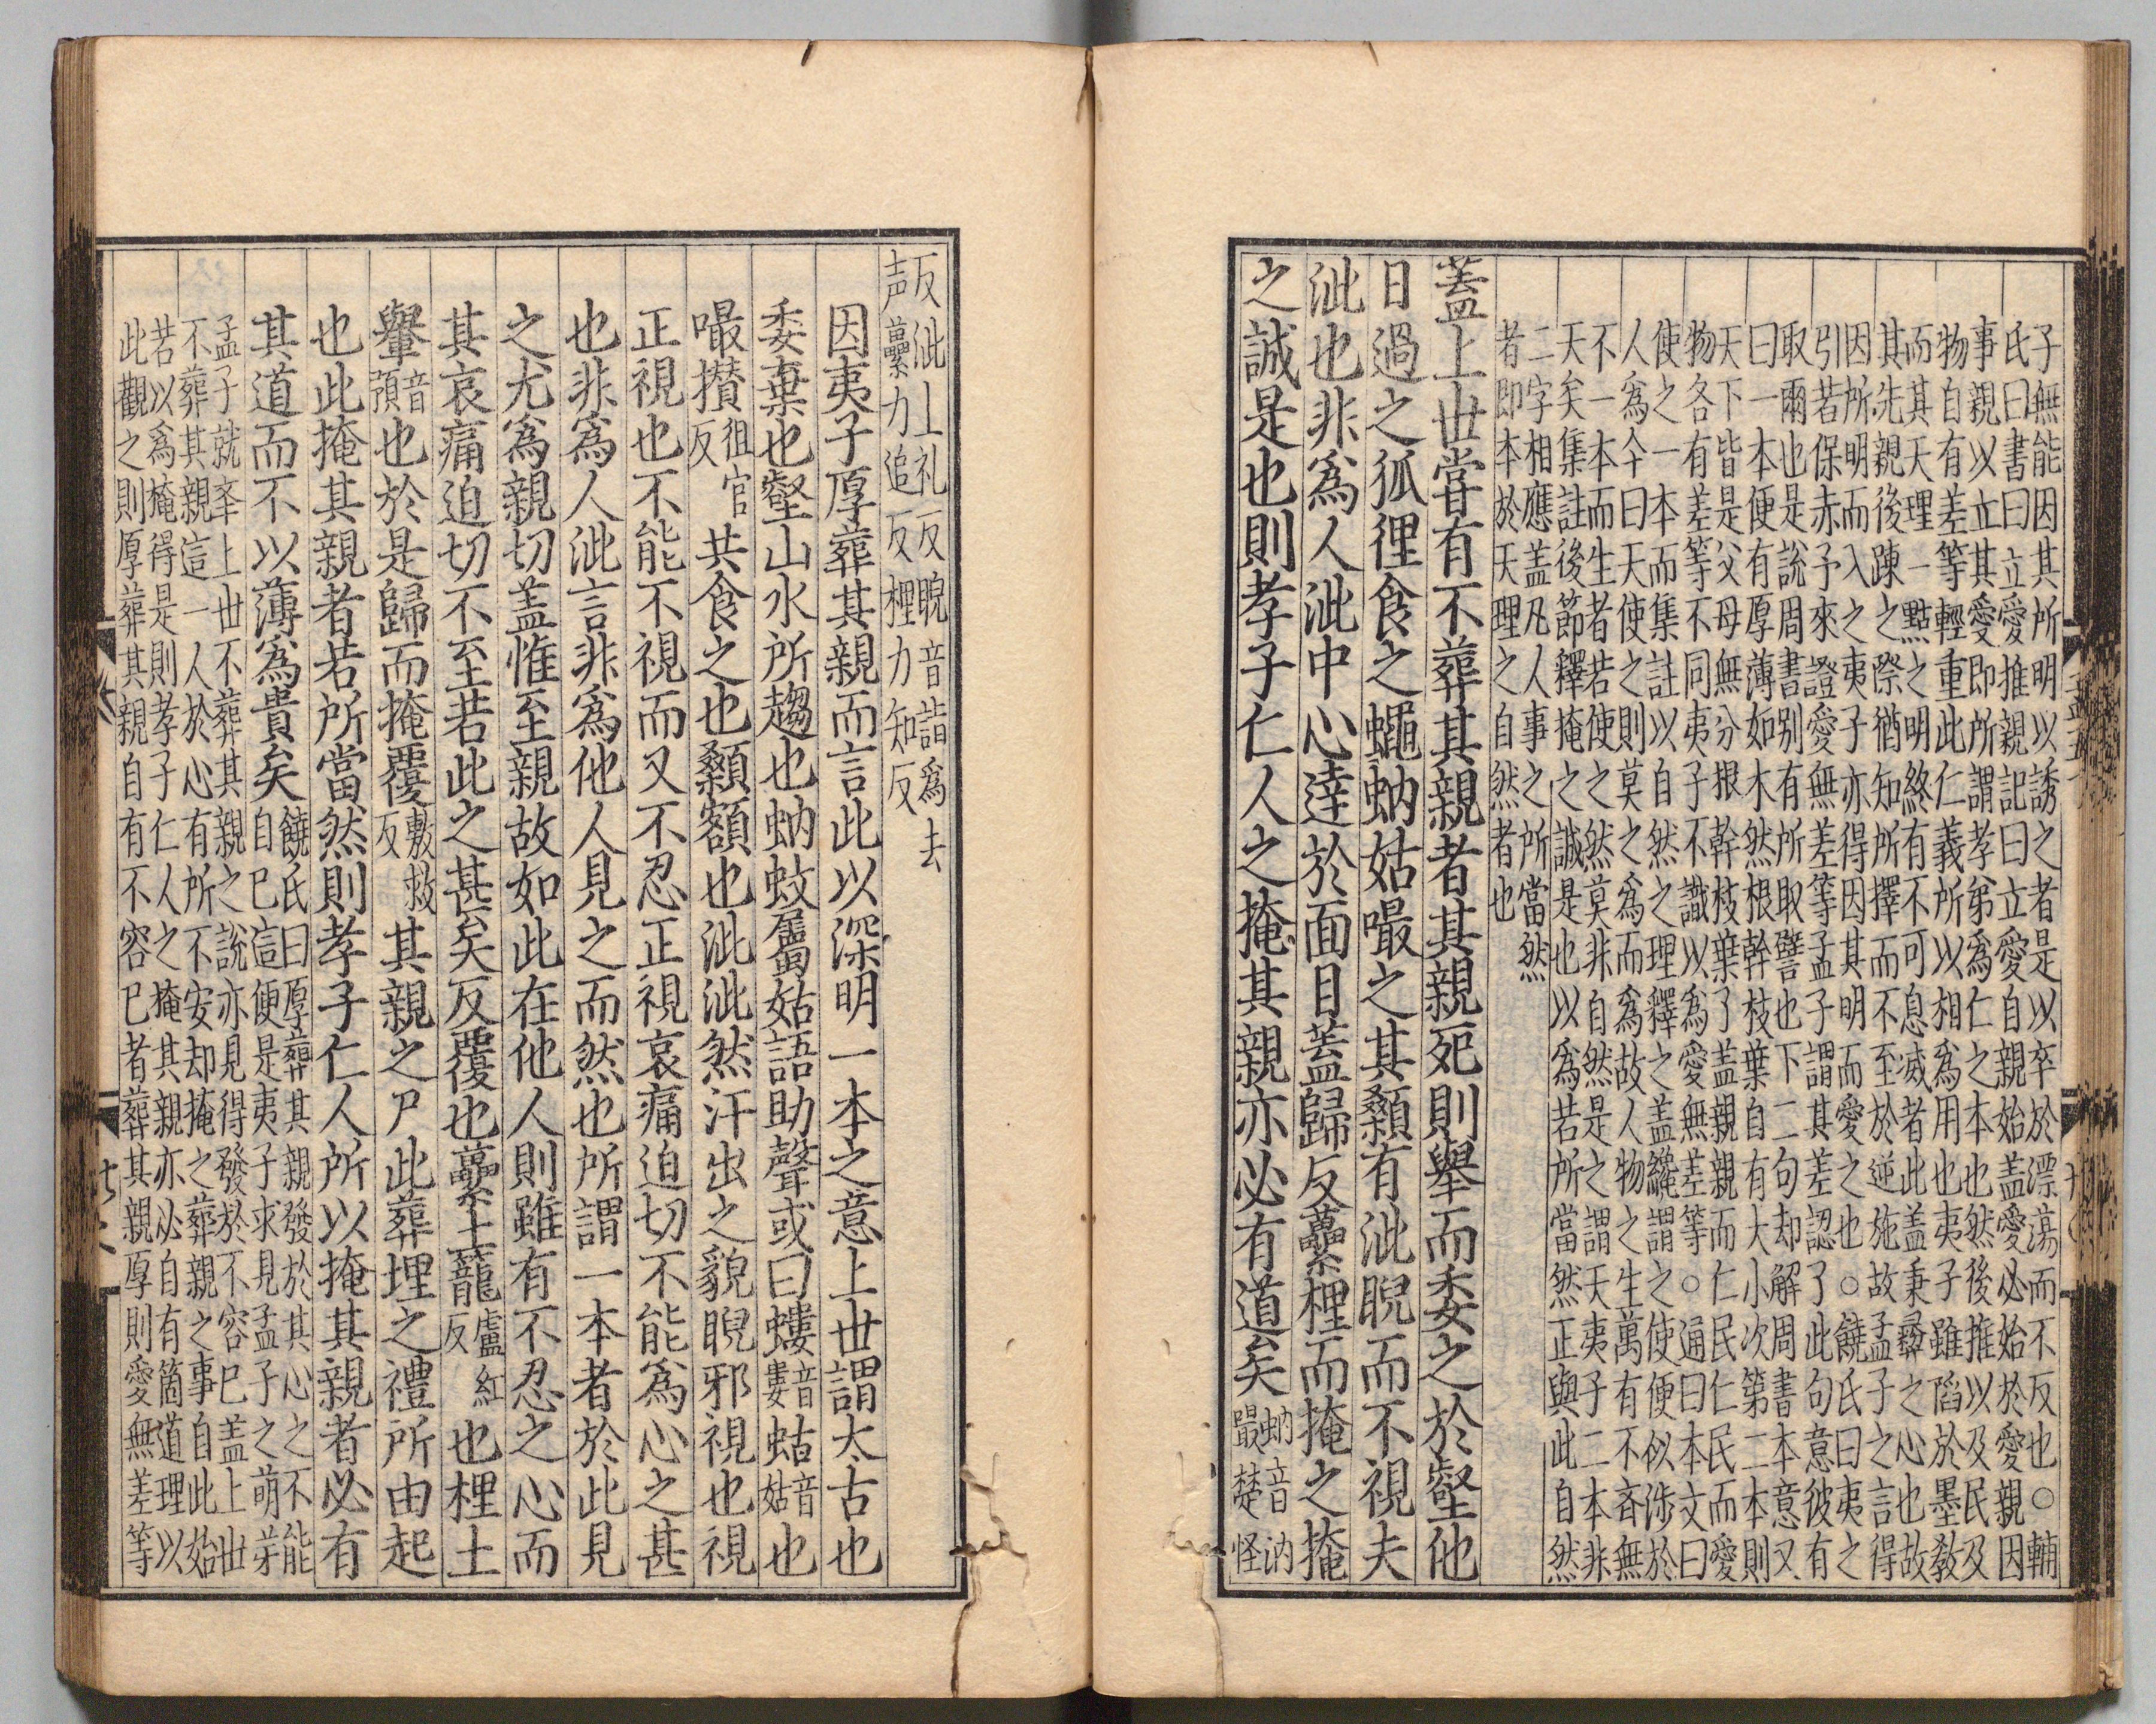 子無能因其所明以誘之者是以卒於漂蕩而不反也○輔
氏曰書曰立愛推親記曰立愛自親始盖愛必始於愛親因
事親以立其愛即所謂孝弟爲仁之本也然後推以及民及
物自有差等輕重此仁義所以相爲用也夷子雖䧟於墨敎
而其天理一點之明終有不可息滅者此盖秉彛之心也故
其先親後踈之際猶知所擇而不至於逆施故孟子之言得
因所明而入之夷子亦得因其明而愛之也○饒氏曰夷之
引若保赤子來證愛無差等孟子謂其差認了此句意彼有
取爾也是說周書別有所取譬也下二句却解周書本意又
曰一本便有厚薄如木然根幹枝葉自有大小次第二本則
天下皆是父母無分根幹枝葉了盖親親而仁民仁民而愛
物各有差等不同夷子不識以爲愛無差等○通曰本文曰
使之一本而集註以自然之理釋之盖纔謂之使便似涉於
人爲今曰天使之則莫之爲而爲故人物之生萬有不齊無
不一本而生者若使之然莫非自然是之謂天夷子二本非
天矣集註後節釋掩之誠是也以爲若所當然正與此自然
二字相應盖凡人事之所當然
者即本於天理之自然者也
蓋上世甞有不葬其親者其親死則舉而委之於壑他
日過之狐狸食之蠅蚋姑嘬之其顙有泚睨而不視夫
泚也非爲人泚中心達於面目盖歸反蘽梩而掩之掩
之誠是也則孝子仁人之掩其親亦必有道矣蚋音汭嘬楚怪
反泚上礼反睨音詣爲去
声蘽力追反梩力知反
因夷子厚葬其親而言此以深明一本之意上世謂太古也
委棄也壑山水所趨也蚋蚊屬姑語助聲或曰螻音婁蛄音姑也
嘬攅徂官反共食之也顙額也泚泚然汗出之貌睨邪視也視
正視也不能不視而又不忍正視哀痛迫切不能爲心之甚
也非爲人泚言非爲他人見之而然也所謂一本者於此見
之尤爲親切盖惟至親故如此在他人則雖有不忍之心而
其哀痛迫切不至若此之甚矣反覆也蘽土籠盧紅反也梩土
轝音預也於是歸而掩覆敷救反其親之尸此葬埋之禮所由起
也此掩其親者若所當然則孝子仁人所以掩其親者必有
其道而不以薄爲貴矣饒氏曰厚葬其親發於其心之不能
自已這便是夷子求見孟子之萌芽
孟子就夲上世不葬其親之說亦見得發於不容已盖上世
不葬其親這一人於心有所不安却掩之葬親之事自此始
若以爲掩得是則孝子仁人之掩其親亦必自有箇道理以
此觀之則厚葬其親自有不容已者葬其親厚則愛無差等